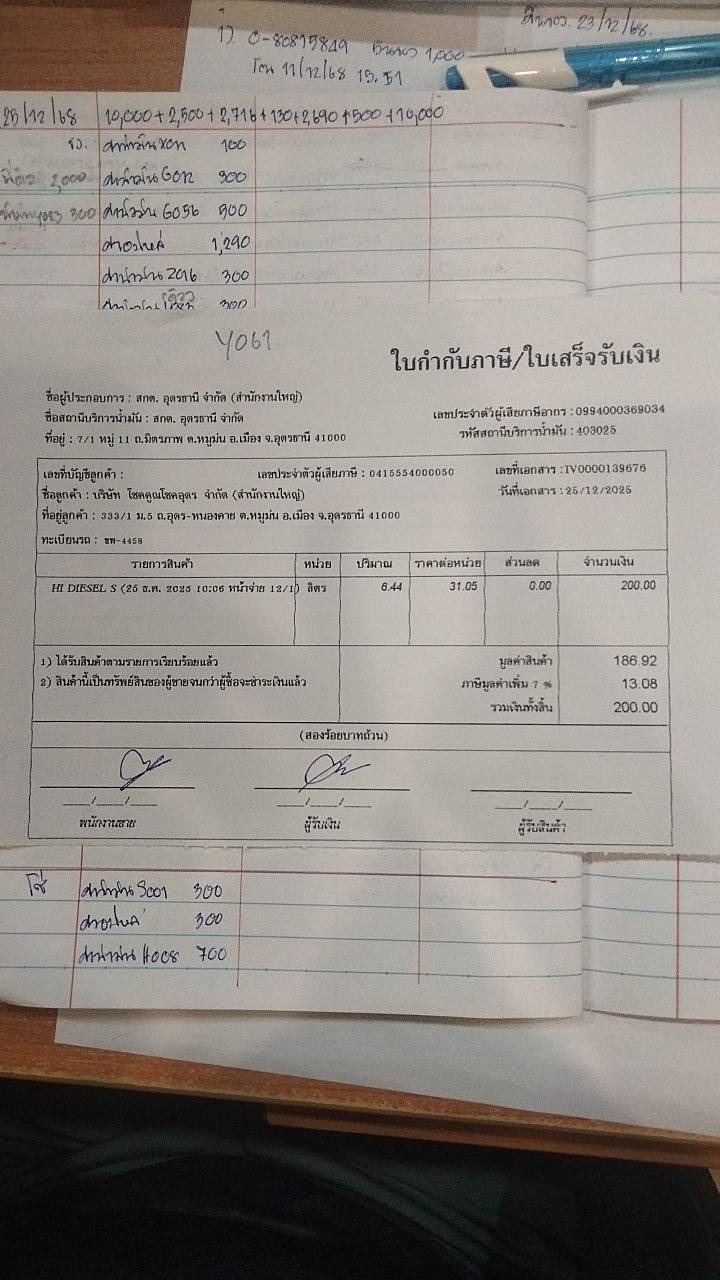 1) 0-80815849 1,000
โอน 11/12/68 15.51
23/12/68.
25/12/68 10,000+2,500+2,716+130+2,690+500+10,000
ค่าน้ำมัน 100
2,000 ค่าน้ำมัน G012 900
300 ค่าน้ำมัน G056 500
ค่าอะไหล่ 1,290
ค่าน้ำมัน 2016 300
300
Y061
ใบกำกับภาษี/ใบเสร็จรับเงิน
ชื่อผู้ประกอบการ : สกต. อุดรธานี จำกัด (สำนักงานใหญ่)
ชื่อสถานีบริการน้ำมัน : สกต. อุดรธานี จำกัด
เลขประจำตัวผู้เสียภาษีอากร : 0994000369034
ที่อยู่ : 7/1 หมู่ 11 ถ.มิตรภาพ ต.หมูม่น อ.เมือง จ.อุดรธานี 41000
รหัสสถานีบริการน้ำมัน : 403025
เลขที่บัญชีลูกค้า : เลขประจำตัวผู้เสียภาษี : 0415554000050 เลขที่เอกสาร : IV0000139676
ชื่อลูกค้า : บริษัท โชคคูณโชคอุดร จำกัด (สำนักงานใหญ่) วันที่เอกสาร : 25/12/2025
ที่อยู่ลูกค้า : 333/1 ม.5 ถ.อุดร-หนองคาย ต.หมูม่น อ.เมือง จ.อุดรธานี 41000
ทะเบียนรถ : ขพ-4458
รายการสินค้า หน่วย ปริมาณ ราคาต่อหน่วย ส่วนลด จำนวนเงิน
HI DIESEL S (25 ธ.ค. 2025 10:06 หน้าจ่าย 12/1) ลิตร 6.44 31.05 0.00 200.00
1) ได้รับสินค้าตามรายการเรียบร้อยแล้ว มูลค่าสินค้า 186.92
2) สินค้านี้เป็นทรัพย์สินของผู้ขายจนกว่าผู้ซื้อจะชำระเงินแล้ว ภาษีมูลค่าเพิ่ม 7 % 13.08
รวมเงินทั้งสิ้น 200.00
(สองร้อยบาทถ้วน)
___/___/___ ___/___/___ ___/___/___
พนักงานขาย ผู้รับเงิน ผู้รับสินค้า
โช่ ค่าน้ำมัน S001 300
ค่าอะไหล่ 300
ค่าน้ำมัน H008 700